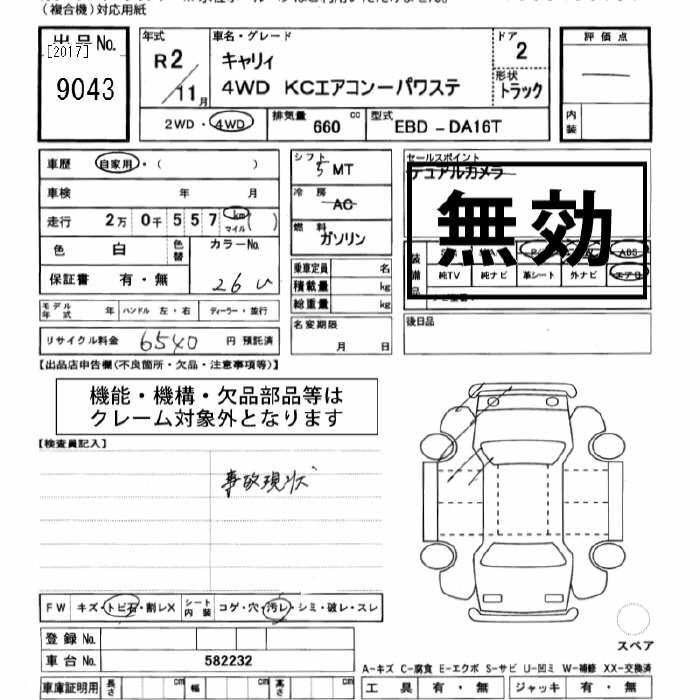 (複合機)対応用紙
出品No.
[2017]
9043
年式
R2/11月
車名・グレード
キャリィ
4WD KCエアコンーパワステ
ドア
2
形状
トラック
評価点
内装
2WD・4WD
排気量 660 cc
型式 EBD -DA16T
車歴 自家用・( )
車検 年 月
走行 2万 0千 5 5 7 km マイル ( )
色 白 色替
カラーNo.
26U
保証書 有・無
シフト 5 MT
冷房 AC
燃料 ガソリン
乗車定員 名
積載量 kg
総重量 kg
セールスポイント
デュアルカメラ
無効
装備品
ABS
純TV 純ナビ 革シート 外ナビ エアB
モデル年式 年 ハンドル 左・右 ディーラー・並行
リサイクル料金 6540 円 預託済
名変期限
月 日
後日品
【出品店申告欄(不良箇所・欠品・注意事項等)】
機能・機構・欠品部品等は
クレーム対象外となります
【検査員記入】
事故現状
FW キズ・トビ石・割レX シート内装 コゲ・穴・汚レ・シミ・破レ・スレ
登録 No.
車台 No. 582232
スペア
A-キズ C-腐食 E-エクボ S-サビ U-凹ミ W-補修 XX-交換済
車庫証明用 長さ cm 幅 cm 高さ cm
工具 有・無 ジャッキ 有・無